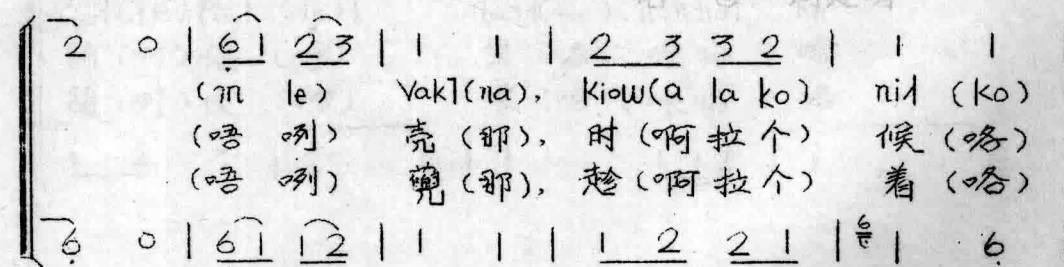 2 0 | 6̣ 1 2 3 | 1 1 | 2 3 3 2 | 1 1
(m le) Vak˥(na), Kiow(a la ko) nil (ko)
(唔 咧) 亮 (那), 时 (啊 拉 个) 候 (咯)
(唔 咧) (那), 趁 (啊 拉 个) 着 (咯)
6̣ 0 | 6̣ 1 1 2 | 1 1 | 1 2 2 1 | 6̣ 1 6̣